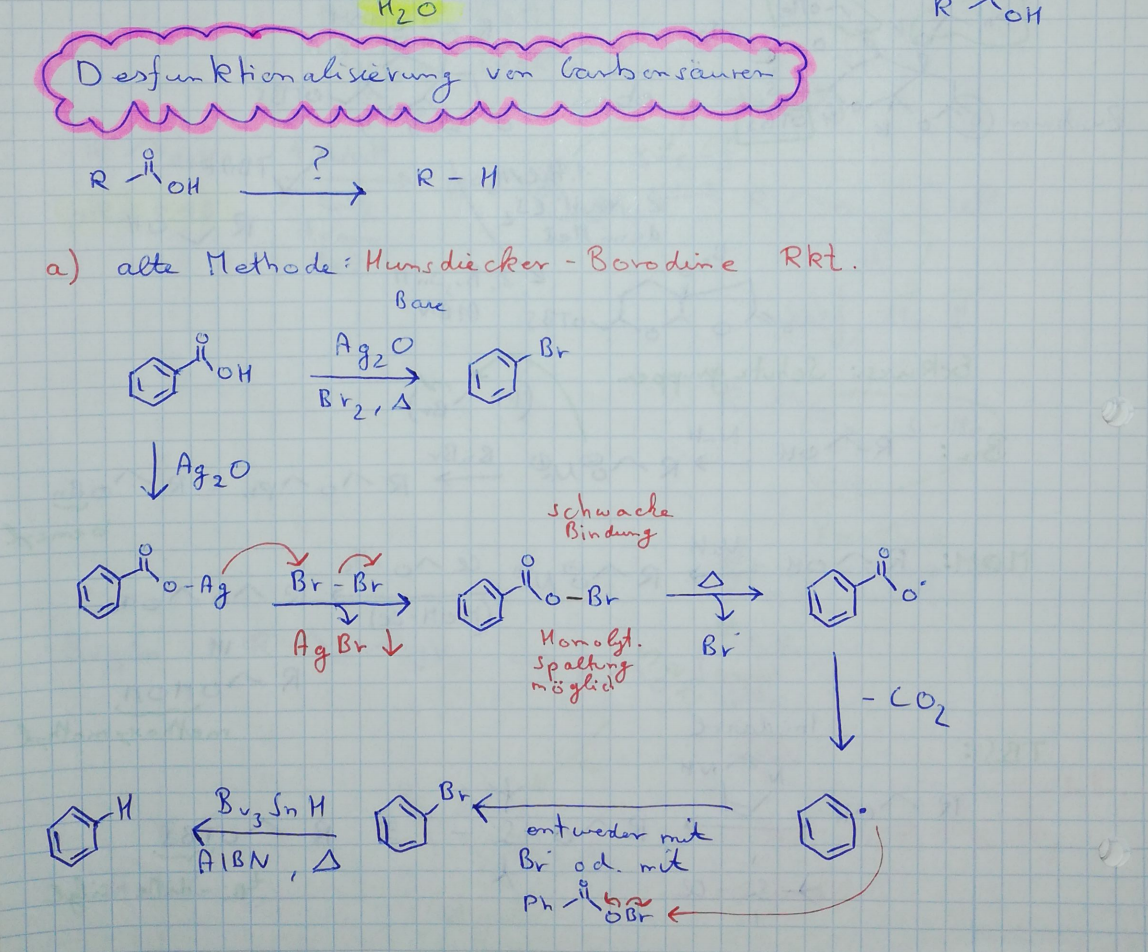 H₂O
R OH
Desfunktionalisierung von Carbonsäuren
R O OH ? R - H
a) alte Methode: Hunsdiecker - Borodine Rkt.
Base
O OH Ag₂O Br
Br₂, Δ
Ag₂O
schwache
Bindung
O O-Ag Br-Br O O-Br Δ O O·
AgBr ↓ Br·
Homolyt.
spaltung
möglich
- CO₂
H Bu₃SnH Br
AIBN, Δ
entweder mit
Br· od. mit
Ph O OBr